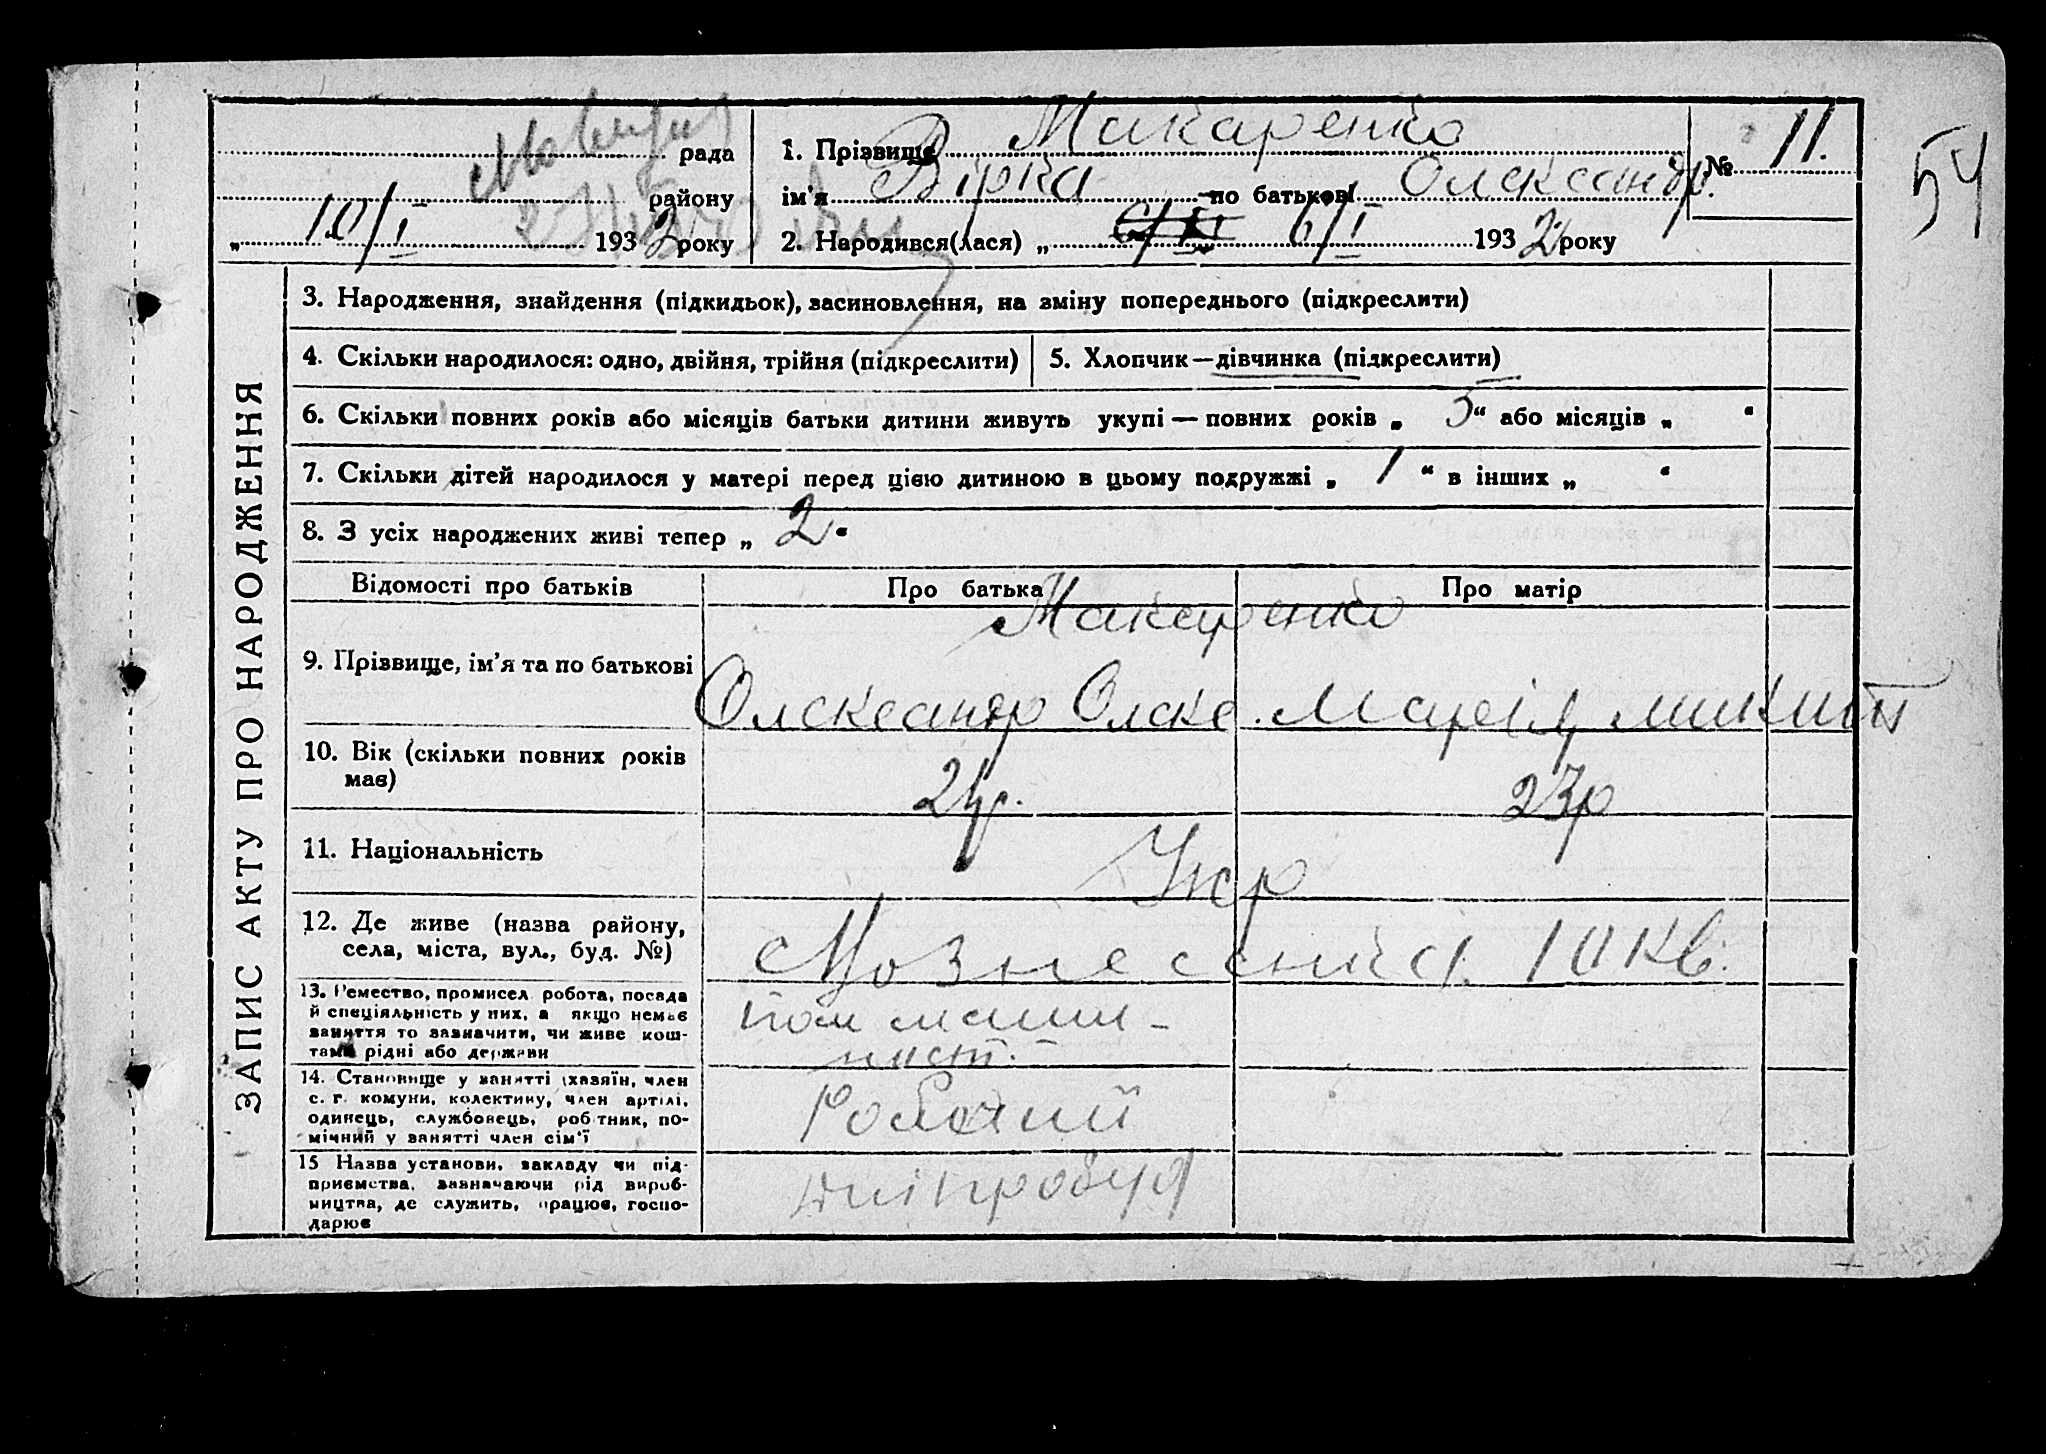 рада
району
10/I 1932 року
1. Прізвище Макаренко
ім'я Вірка по батькові Олександр.
2. Народився(лася) „ 6/I 1932 року
№ 11.
54
ЗАПИС АКТУ ПРО НАРОДЖЕННЯ
3. Народження, знайдення (підкидьок), засиновлення, на зміну попереднього (підкреслити)
4. Скільки народилося: одно, двійня, трійня (підкреслити)
5. Хлопчик—дівчинка (підкреслити)
6. Скільки повних років або місяців батьки дитини живуть укупі — повних років „ 5 “ або місяців „ “
7. Скільки дітей народилося у матері перед цією дитиною в цьому подружжі „ 1 “ в інших „ “
8. З усіх народжених живі тепер „ 2 “
Відомості про батьків
Про батька
Про матір
Макаренко
9. Прізвище, ім'я та по батькові
Олександр Олекс. Марія Микит
10. Вік (скільки повних років
має)
24р.
23р
11. Національність
Укр
12. Де живе (назва району,
села, міста, вул., буд. №)
Вознесенка. 10 кв.
13. Ремество, промисел робота, посада
й спеціяльність у них, а якщо немає
заняття то зазначити, чи живе кош-
тами рідні або держави
пом маши-
нист.
14. Становище у занятті (хазяїн, член
с. г. комуни, колективу, член артілі,
одинець, службовець, робітник, по-
мічний у занятті член сім'ї
Робочий
15 Назва установи, закладу чи під-
приємства, зазначаючи рід вироб-
ництва, де служить, працює, госпо-
дарює
Дніпробуд